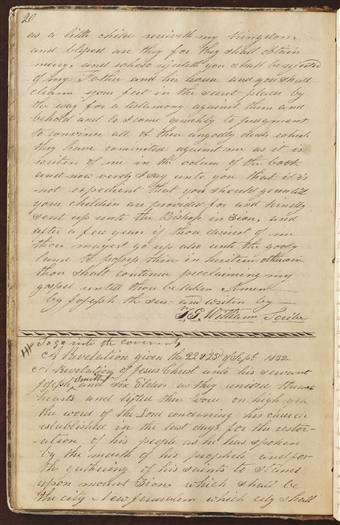 20
as a little childe receiveth my kingdom
and blessed are they for they shall obtain
mercy and whoso rejecteth you shall be rejected
of my Father and his house and you shall
cleanse your feet in the secret places by
the way for a testimony against them and
behold and lo I come quickly to judgment
to convince all of their ungodly deeds which
they have committed against me as it is
writen of me in the volum of the book
and now verily I say unto you that it is
not expedient that you should go untill
your children are provided for and kindly
sent up unto the Bishop in Zion, and
after a few years if thou desirest of me
thou mayest go up also unto the goodly
land to possess thine inheritence otherwise
thou shall continue proclaiming my
gospel untill thou be taken Amen
by Joseph the Seer and writen by
F. G. Williams Scribe
to go into the covenants
A Revelation given the 22 & 23d of Sept. 1832
A Revelation of Jesus Christ unto his servant
Joseph Smith and six Elders as they united their
hearts and lifted their voice on high yea
the word of the Lord concerning his church
established in the last days for the restor-
ation of his people as he has spoken
by the mouth of his prophets and for
the gathering of his saints to stand
upon mount Zion which shall be
the city New Jerusalem which city shall